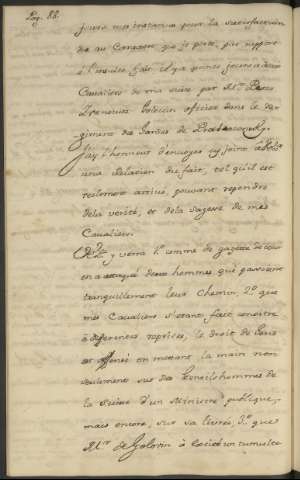 Pag. 88.
jours mes instances pour la satisfaction
due au Caractere que je porte, par rapport
à l'insulte faite il y a quinze jours a deux
Cavaliers de ma suite par Mr.
officier dans le Re-
giment des Gardes de Preobaconsky.
J'ay l'honneur d'envoyer cy joint a
une Relation du fait, tel qu'il est
reelement arrivé, pouvant repondre
de la verité, et de la sagesse de mes
Cavaliers.
y verra 1.° comme de gayeté de coeur
on a attaqué deux hommes, qui passoient
tranquilement leur Chemin, 2.° que
mes Cavaliers s'etant fait connoitre
à differentes reprises, le droit de Gens
est offensé en mettant la main non
seulement sur des Gentilshommes de
la Suite d'un Ministre publique,
mais encore, sur sa livrée, 3.° que
Mr. de Golovin a excité un tumulte